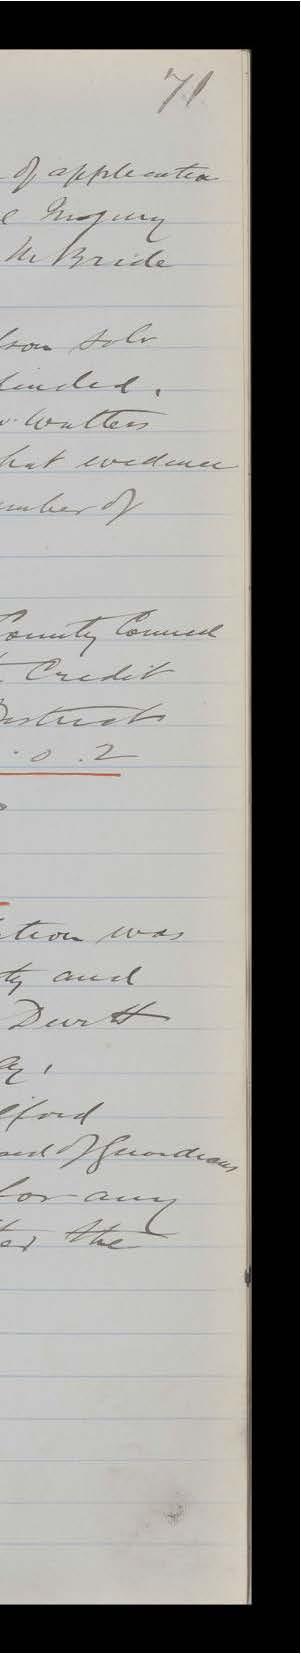 71
of application
Inquiry
McBride
son solr
.
Walters
hat evidence
mber of
County Council
Credit
Districts
. 0 . 2
tion was
ty and
ay,
lford
ard of Guardians
for any
the